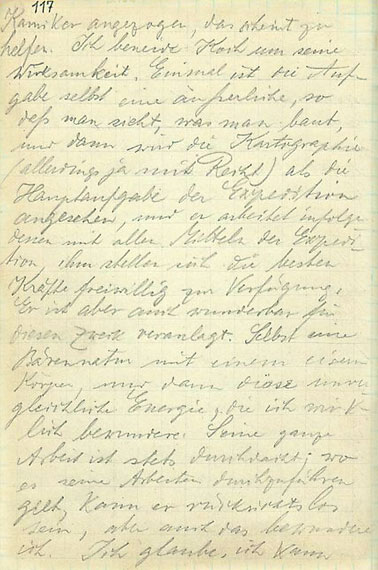 117
Kamiker angezogen, das scheint zu
helfen. Ich beneide Koch um seine
Wirksamkeit. Einmal ist die Auf-
gabe selbst eine äußerliche, so
daß man sieht, was man baut,
und dann wird die Kartographie
(allerdings ja mit Recht) als die
Hauptaufgabe der Expedition
angesehen, und er arbeitet infolge
dessen mit allen Mitteln der Expedi-
tion, ihm stellen sich die besten
Kräfte freiwillig zur Verfügung.
Er ist aber auch wunderbar für
diesen Zweck veranlagt. Selbst eine
Bärennatur mit einem eisern
Körper, und dann diese unver
gleichliche Energie, die ich wirk-
lich bewundere. Seine ganze
Arbeit ist stets durchdacht; wo
es seine Arbeiten durchzuführen
gilt, kann er rücksichtslos
sein, aber auch das bewundere
ich. Ich glaube, ich kann